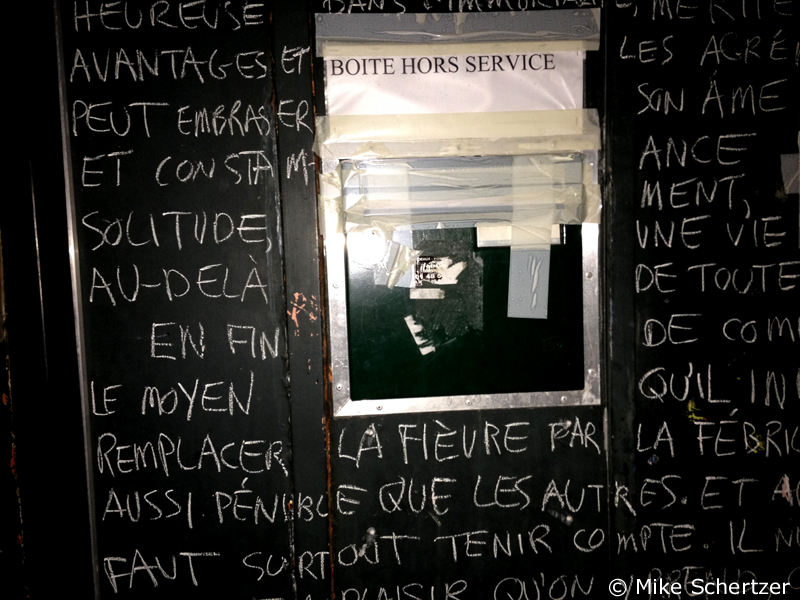 HEUREUSE DANS L'IMMORTALI E, MÉRITE
AVANTAGES ET LES AGRÉ
BOITE HORS SERVICE
PEUT EMBRASER SON ÂME
ET CONSTAM- ANCE
MENT,
SOLITUDE, UNE VIE
AU-DELÀ DE TOUTE
EN FIN DE COM
LE MOYEN QU'IL IN
REMPLACER LA FIÈVRE PAR LA FÉBRIL
AUSSI PÉNIBLE QUE LES AUTRES. ET
FAUT SURTOUT TENIR COMPTE. IL N
PLAISIR QU'ON
© Mike Schertzer